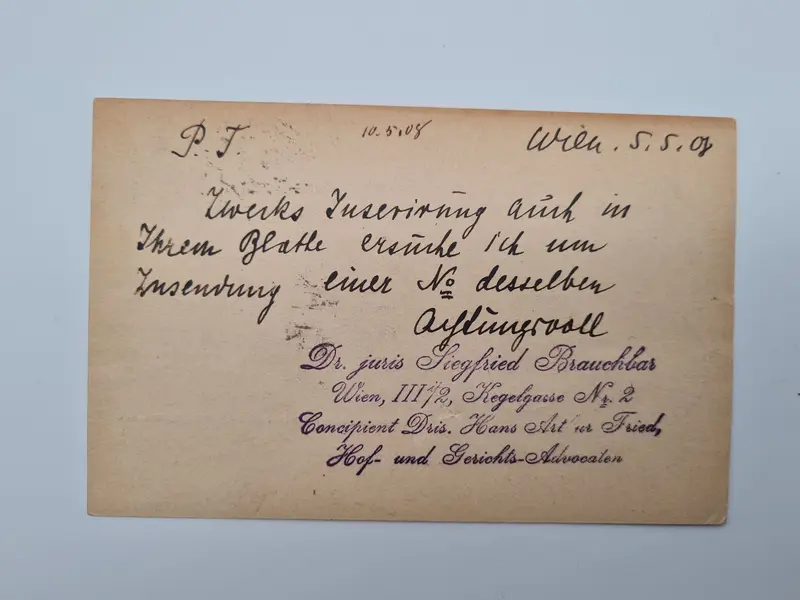 P. T. 10.5.08 Wien. 5.5.08
Zwecks Inserirung auch in
Ihrem Blatte ersuche ich um
Zusendung einer No desselben
Achtungsvoll
Dr. juris Siegfried Brauchbar
Wien, III/2, Kegelgasse Nr. 2
Concipient Dris. Hans Artur Fried,
Hof- und Gerichts-Advocaten